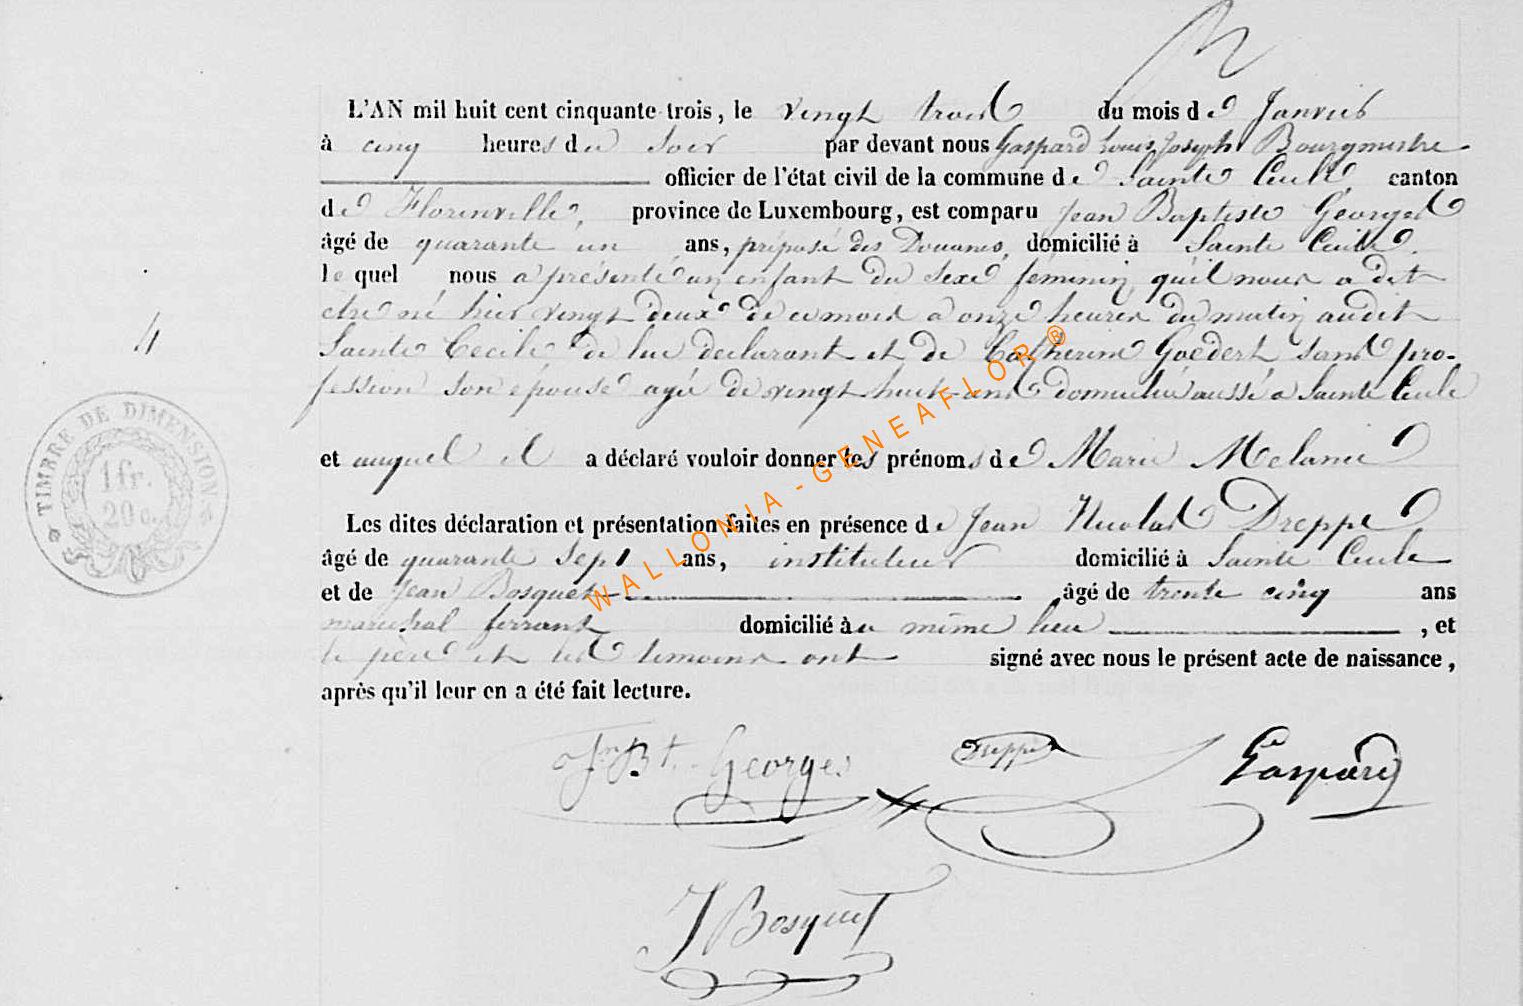 L'AN mil huit cent cinquante-trois, le vingt trois du mois de Janvier
à cinq heures du soir par devant nous Gaspard Louis Joseph Bourgmestre
officier de l'état civil de la commune de Sainte Cecile, canton
de Florenville, province de Luxembourg, est comparu Jean Baptiste Georges
âgé de quarante un ans, préposé des Douanes, domicilié à Sainte Cecile.
lequel nous a présenté un enfant du sexe féminin, qu'il nous a dit
etre né hier vingt deux de ce mois a onze heures du matin audit
Sainte Cecile de lui declarant et de Catherine Goedert, sans pro-
fession son épouse agée de vingt huit ans domiciliée aussi a Sainte Cecile
et auquel il a déclaré vouloir donner les prénoms de Marie Melanie
Les dites déclaration et présentation faites en présence de Jean Nicolas Dreppe
âgé de quarante sept ans, instituteur domicilié à Sainte Cecile
et de Jean Bosquet âgé de trente cinq ans
marechal ferrant domicilié au même lieu , et
le père et les temoins ont signé avec nous le présent acte de naissance,
après qu'il leur en a été fait lecture.
4
TIMBRE DE DIMENSION
1 fr.
20 c.
WALLONIA - GENEAFLOR ®
Jn Bt. Georges Dreppe Gaspard
J Bosquet